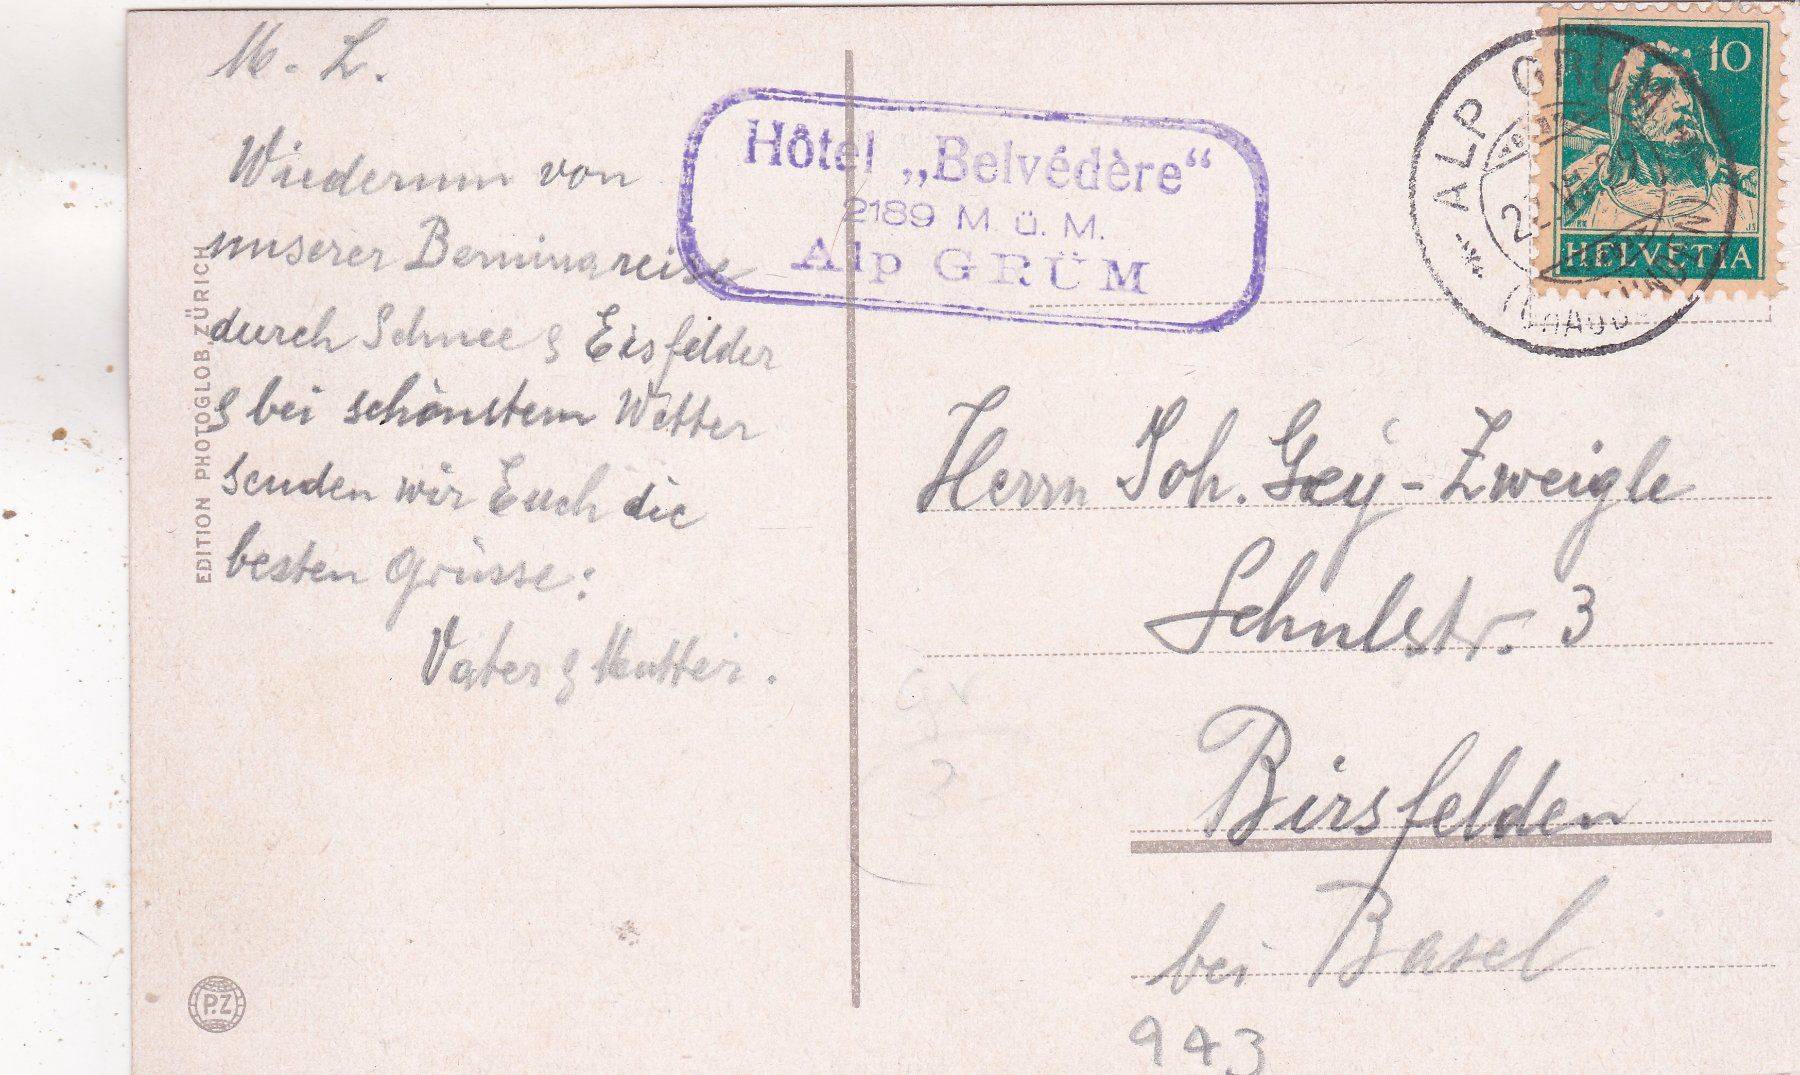 M. L.
Wiederum von
unserer Berninareise
durch Schnee & Eisfelder
& bei schönstem Wetter
senden wir Euch die
besten Grüsse:
Vater & Mutter.
EDITION PHOTOGLOB ZÜRICH
P.Z
Hôtel „Belvédère“
2189 M. ü. M.
Alp GRÜM
ALP GRÜM
10
HELVETIA
Herrn Joh. Gey-Zweigle
Schulstr. 3
Birsfelden
bei Basel
943